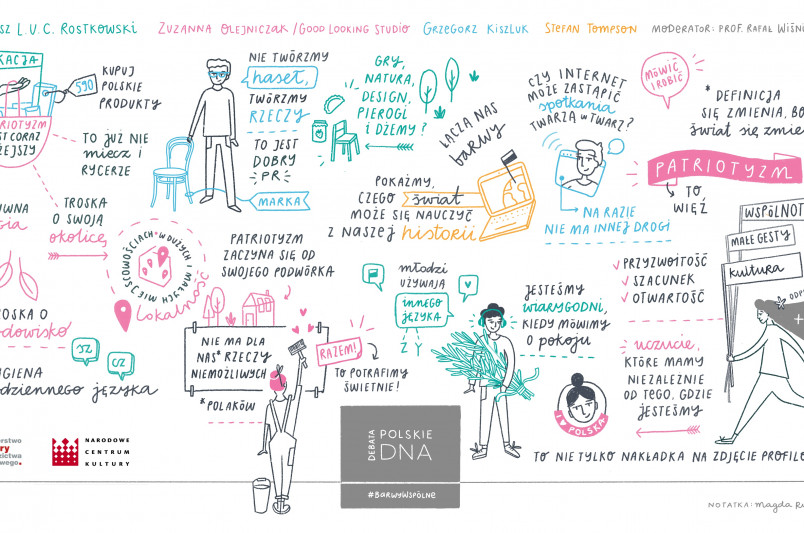 L.U.C. ROSTKOWSKI
ZUZANNA OLEJNICZAK/GOOD LOOKING STUDIO
GRZEGORZ KISZLUK
STEFAN TOMPSON
MODERATOR: PROF. RAFAŁ
KUPUJ
POLSKIE
PRODUKTY
590
TO JUŻ NIE
miecz i
RYCERZE
NIE TWÓRZMY
haseł,
TWÓRZMY
RZECZY
TO JEST
DOBRY
PR
MARKA
GRY,
NATURA,
DESIGN,
PIEROGI
I DŻEMY?
ŁĄCZĄ NAS
barwy
CZY INTERNET
MOŻE ZASTĄPIĆ
spotkania
TWARZĄ W TWARZ?
NA RAZIE
NIE MA INNEJ DROGI
MÓWIĆ
I ROBIĆ
* DEFINICJA
SIĘ ZMIENIA, BO
świat się
PATRIOTYZM
TO
WIĘŹ
POKAŻMY,
CZEGO świat
MOŻE SIĘ NAUCZYĆ
Z NASZEJ historii
TROSKA
O SWOJĄ
okolicę
W DUŻYCH I MAŁYCH MIEJSCOWOŚCIACH
Lokalność
PATRIOTYZM
ZACZYNA SIĘ OD
SWOJEGO PODWÓRKA
NIE MA DLA
NAS* RZECZY
NIEMOŻLIWYCH
*POLAKÓW
RAZEM!
TO POTRAFIMY
ŚWIETNIE!
młodzi
UŻYWAJĄ
innego
języka
JESTEŚMY
WIARYGODNI,
KIEDY MÓWIMY
O POKOJU
PRZYZWOITOŚĆ
SZACUNEK
OTWARTOŚĆ
MAŁE GESTY
kultura
uczucie,
KTÓRE MAMY
NIEZALEŻNIE
OD TEGO, GDZIE
JESTEŚMY
I ♥ POLSKA
TO NIE TYLKO NAKŁADKA NA ZDJĘCIE
O
SZ
CZ
języka
NARODOWE
CENTRUM
KULTURY
DEBATA
POLSKIE
DNA
#BARWYWSPÓLNE
NOTATKA: Magda